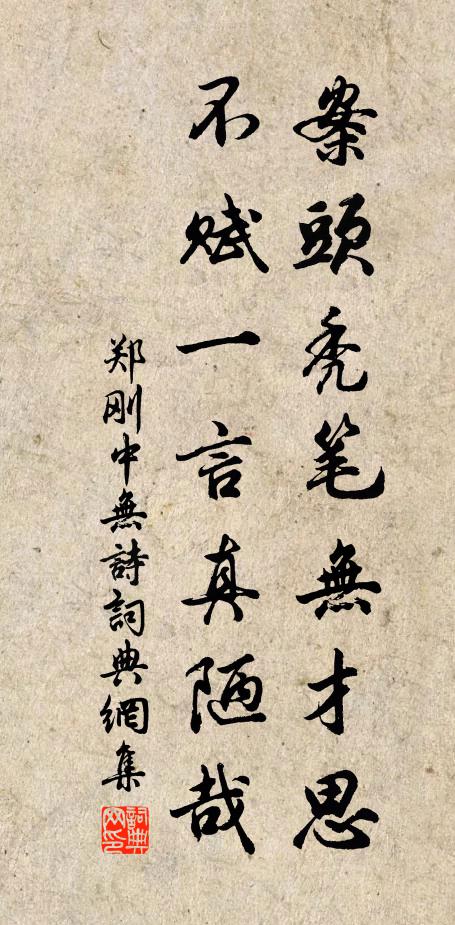 案頭禿笔無才思
不赋一言真陋哉
郑刚中無詩詞典網集
詞典网印